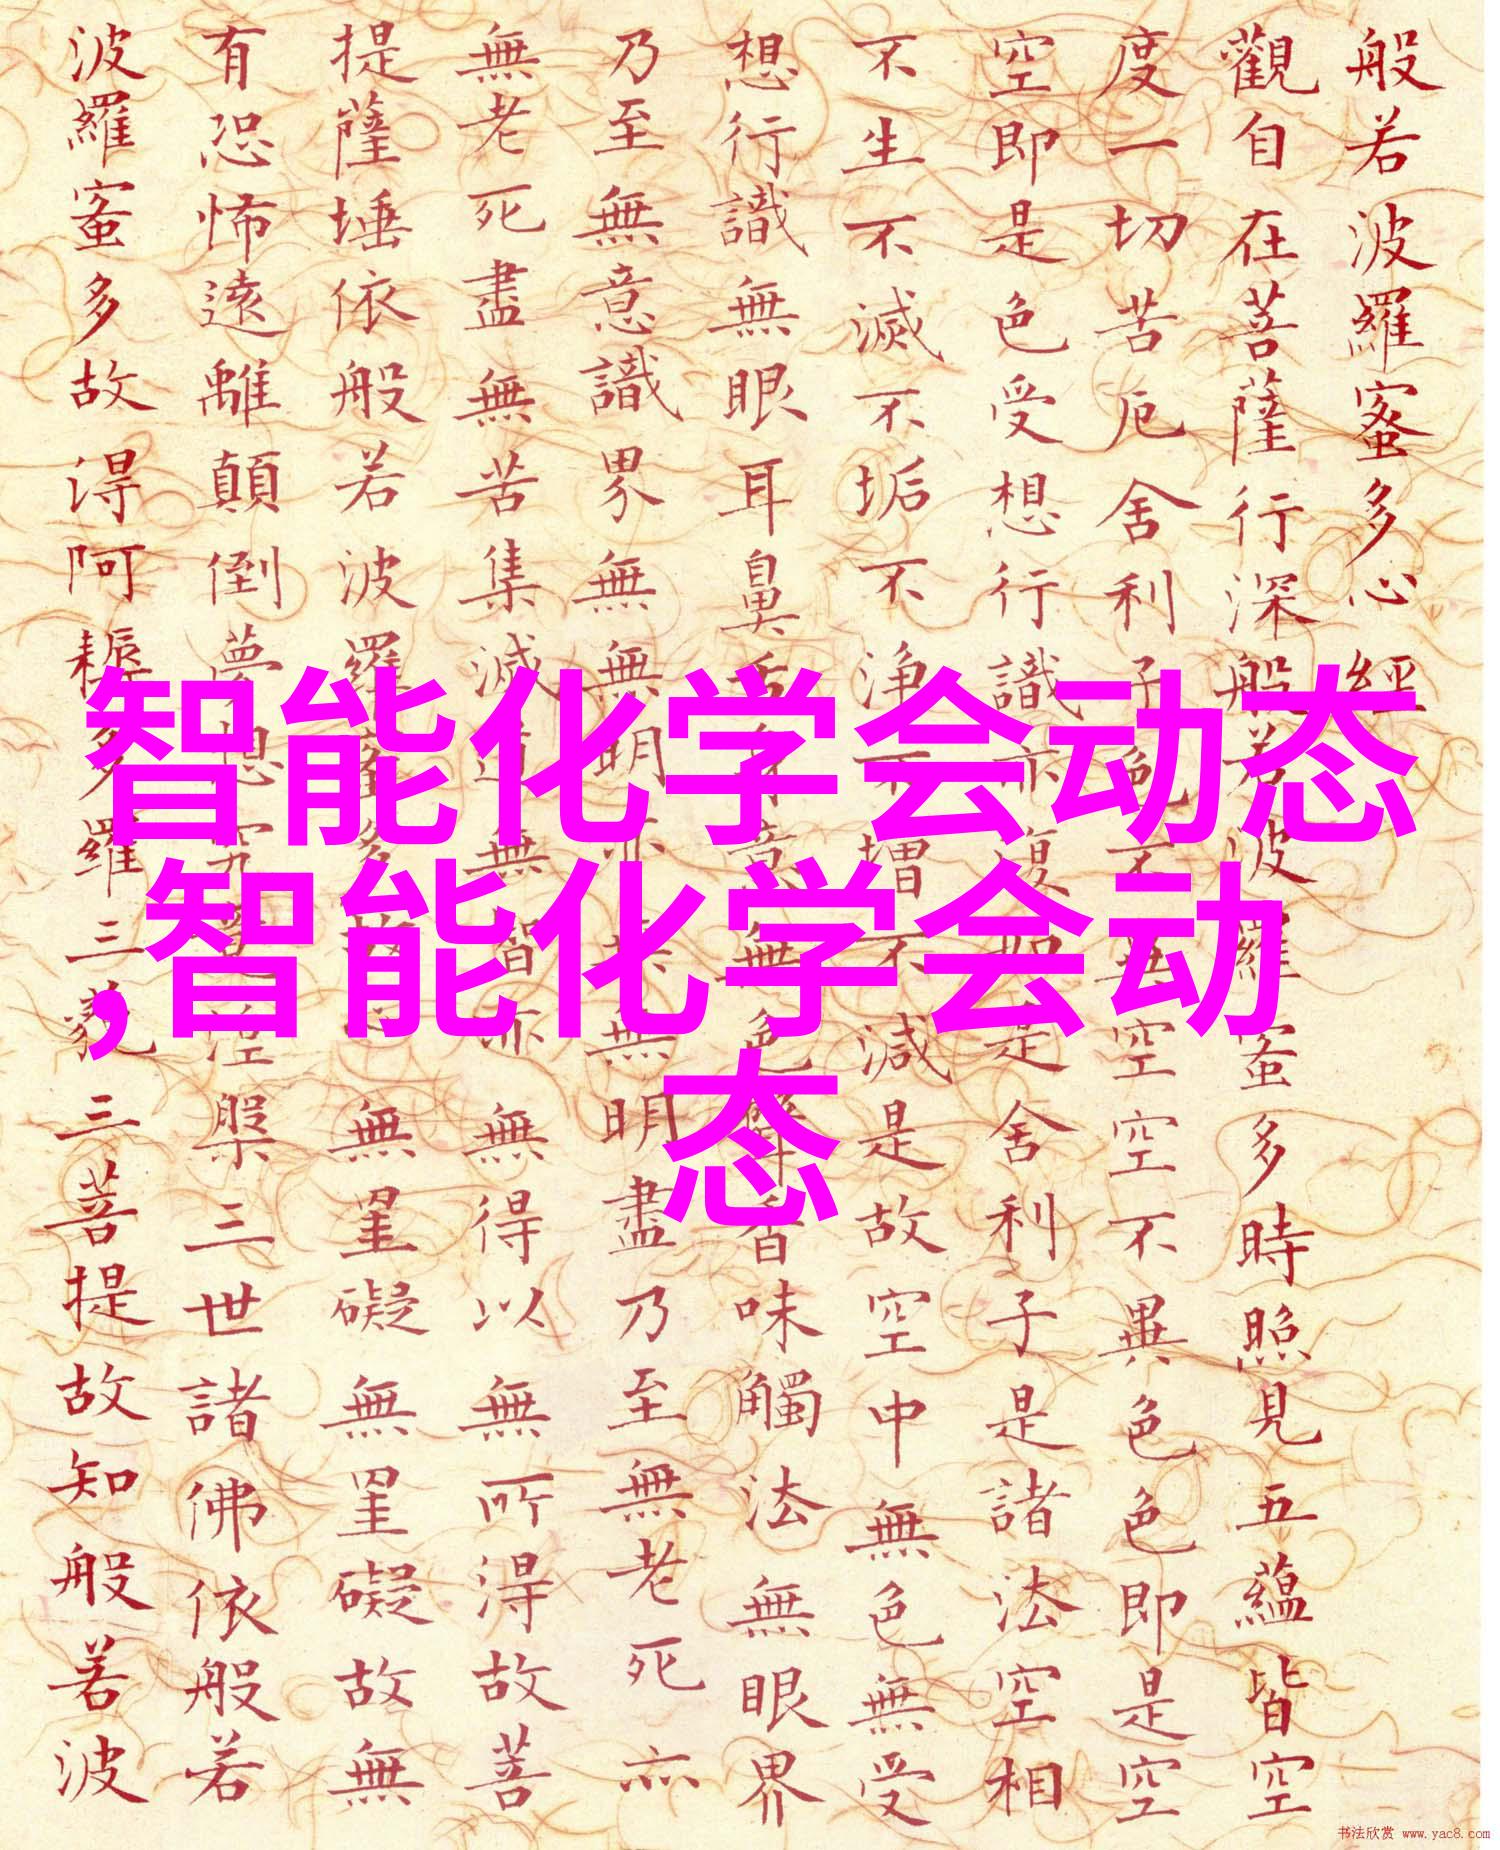 般若波羅蜜多心經
觀自在菩薩行深般若波羅蜜多時照見五蘊皆空
度一切苦厄舍利子色不異空空不異色色即是空
空即是色受想行識亦復如是舍利子是諸法空相
不生不滅不垢不淨不增不減是故空中無色無受
想行識無眼耳鼻舌身意無色聲香味觸法無眼界
乃至無意識界無無明亦無無明盡乃至無老死亦
無老死盡無苦集滅道無智亦無得以無所得故菩
提薩埵依般若波羅蜜多故心無罣礙無罣礙故無
有恐怖遠離顛倒夢想究竟涅槃三世諸佛依般若
波羅蜜多故得阿耨多羅三藐三菩提故知般若波
智能化学会动态
,智能化学会动
态
书法欣赏 www.yac8.com